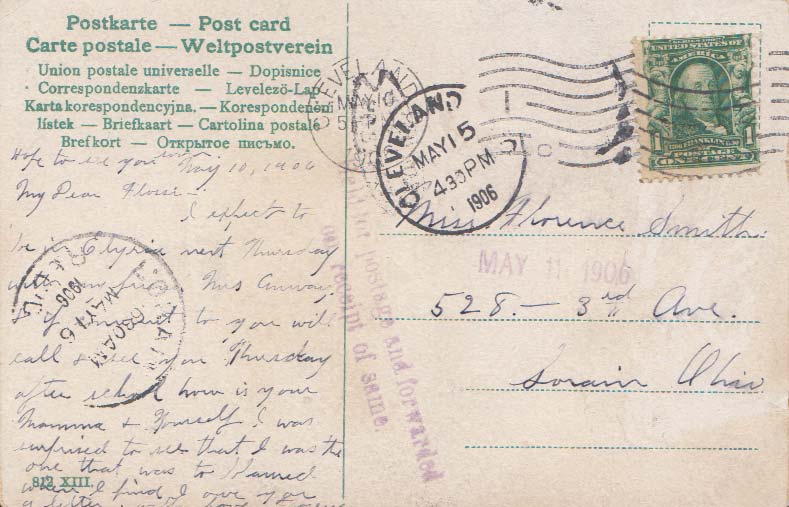 Postkarte — Post card
Carte postale — Weltpostverein
Union postale universelle — Dopisnice
Correspondenzkarte — Levelező-Lap
Karta korespondencyjna. — Korespondenční
lístek — Briefkaart — Cartolina postale
Brefkort — Открытое письмо.
Hope to see you
May 10, 1906
My Dear Flossie-
I expect to
be in Elyria next Thursday
with my friend Mrs
& if convenient to you will
call & see you Thursday
after school how is your
Mamma & Yourself I was
surprised to see that I was the
one that was to blamed
when I find I owe you
a letter
812 XIII.
CLEVELAND
MAY 10
5
CLEVELAND
MAY 15
4 30 PM
1906
UNITED STATES OF
AMERICA
1 FRANKLIN 1
POSTAGE
Miss Florence Smith.
MAY 11 1906
528. — 3rd Ave.
Lorain Ohio
postage and forwarded
on receipt of same
LORAIN
MAY 16
630 AM
1906
OHIO